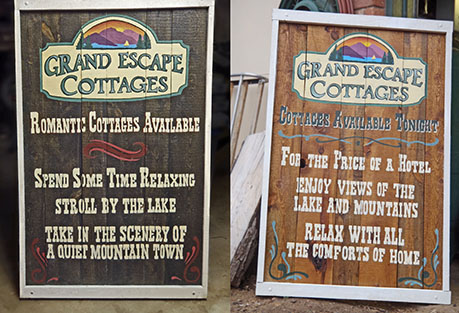 GRAND ESCAPE
COTTAGES
ROMANTIC COTTAGES AVAILABLE
SPEND SOME TIME RELAXING
STROLL BY THE LAKE
TAKE IN THE SCENERY OF
A QUIET MOUNTAIN TOWN
GRAND ESCAPE
COTTAGES
COTTAGES AVAILABLE TONIGHT
FOR THE PRICE OF A HOTEL
ENJOY VIEWS OF THE
LAKE AND MOUNTAINS
RELAX WITH ALL
THE COMFORTS OF HOME